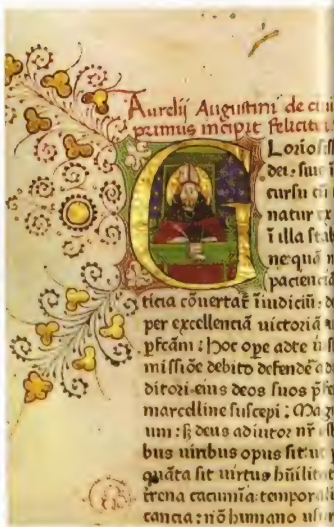 Aurelij Augustini de ciui
primus incipit feliciter
Gloriosiss
dei: siue i
cursu cū i
natur ex
ī illa stabi
ne: quā n
paciencia
ticia cōuertat̄ ī iudiciū: d
per excellenciā uictoriā
pfcām: hoc ope adte
missiōe debito defende
ditori eius deos suos p̄fe
marcelline suscepi: Mag
um: sꝫ deus adiutor nr̄
bus uiribus opus sit: ut p
quāta sit uirtus hūilita
trena cacumīa: temporali
tancia: nō humano usur